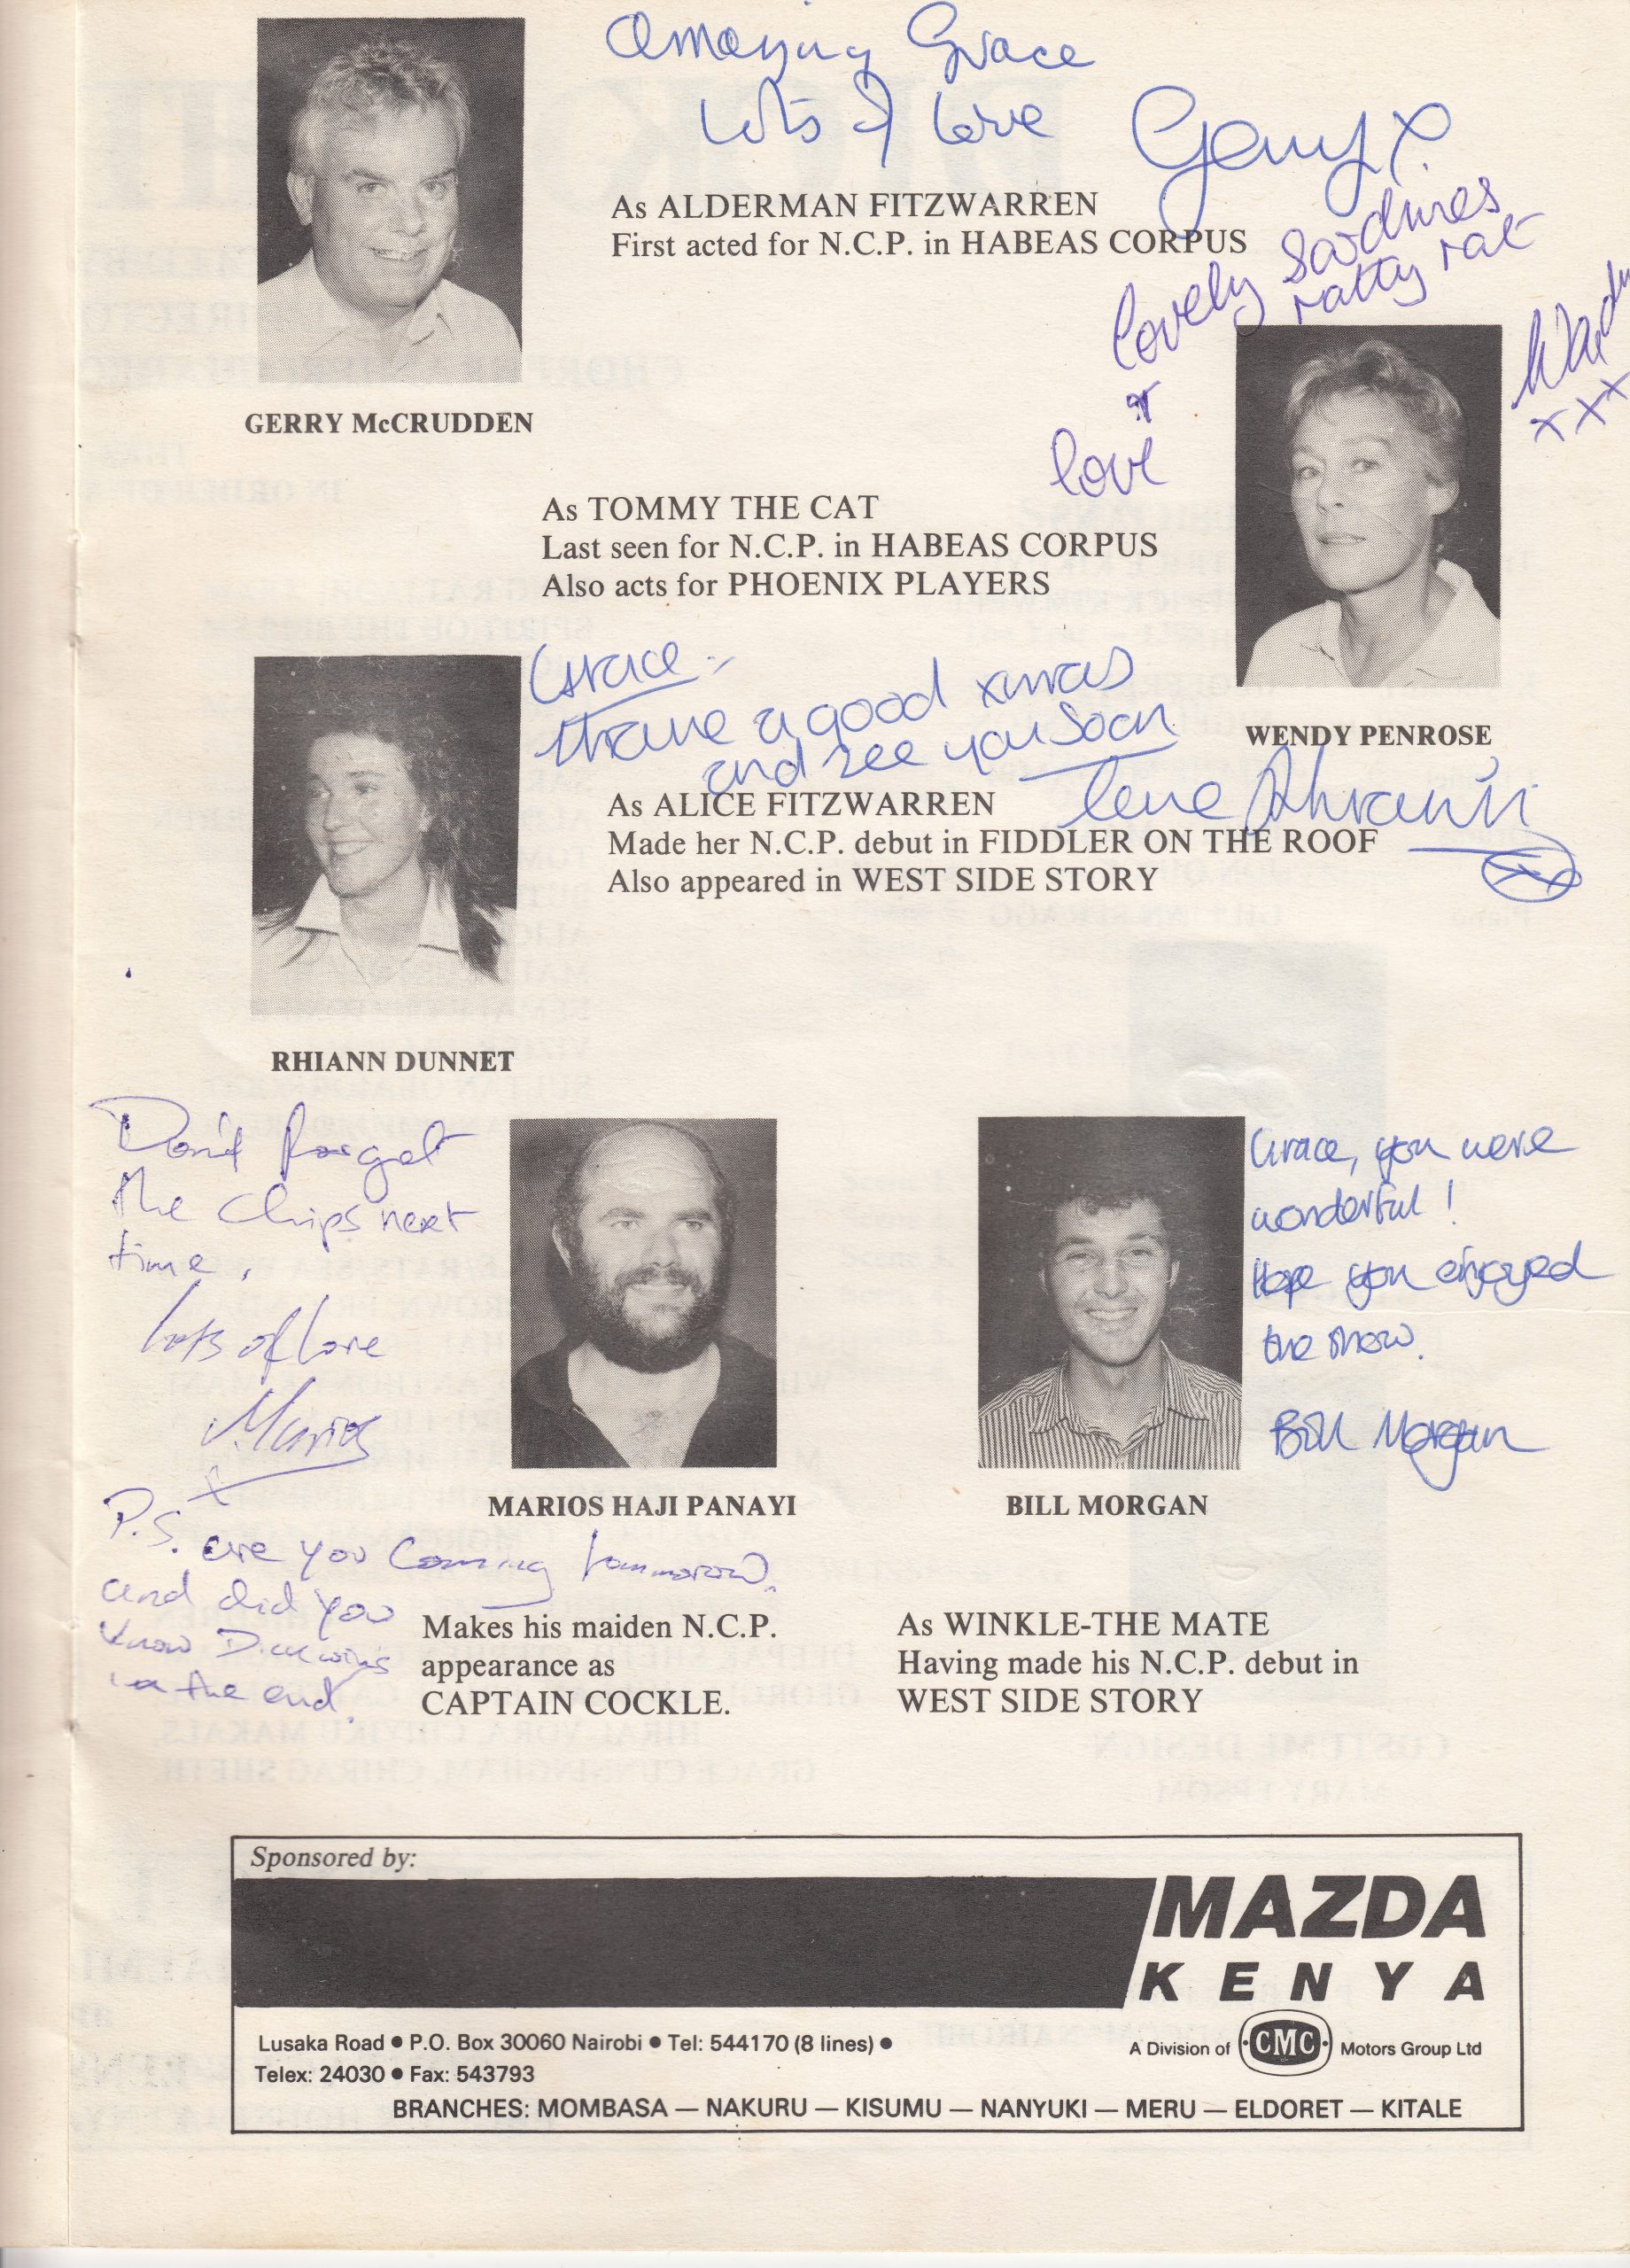 Amazing Grace
Lots of love
Gerry x
As ALDERMAN FITZWARREN
First acted for N.C.P. in HABEAS CORPUS
GERRY McCRUDDEN
lovely Sardines
ratty rat
love
xxx
As TOMMY THE CAT
Last seen for N.C.P. in HABEAS CORPUS
Also acts for PHOENIX PLAYERS
WENDY PENROSE
Grace -
have a good xmas
and see you soon
love Rhiann
xx
As ALICE FITZWARREN
Made her N.C.P. debut in FIDDLER ON THE ROOF
Also appeared in WEST SIDE STORY
RHIANN DUNNET
Don't forget
the Chips next
time.
lots of love
Marios
x
P.S. are you Coming tommorow.
and did you
know Dick wins
in the end.
MARIOS HAJI PANAYI
Makes his maiden N.C.P.
appearance as
CAPTAIN COCKLE.
Grace, you were
wonderful!
Hope you enjoyed
the show.
Bill Morgan
BILL MORGAN
As WINKLE-THE MATE
Having made his N.C.P. debut in
WEST SIDE STORY
Sponsored by:
MAZDA
KENYA
Lusaka Road ● P.O. Box 30060 Nairobi ● Tel: 544170 (8 lines) ●
Telex: 24030 ● Fax: 543793
A Division of CMC Motors Group Ltd
BRANCHES: MOMBASA — NAKURU — KISUMU — NANYUKI — MERU — ELDORET — KITALE